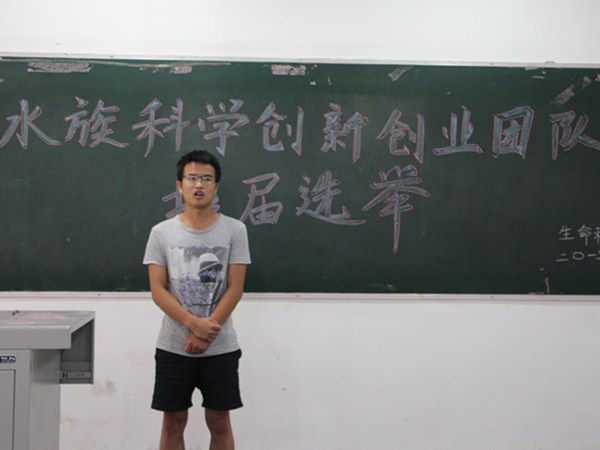 水族科学创新创业团队
届选举
生命
二〇一